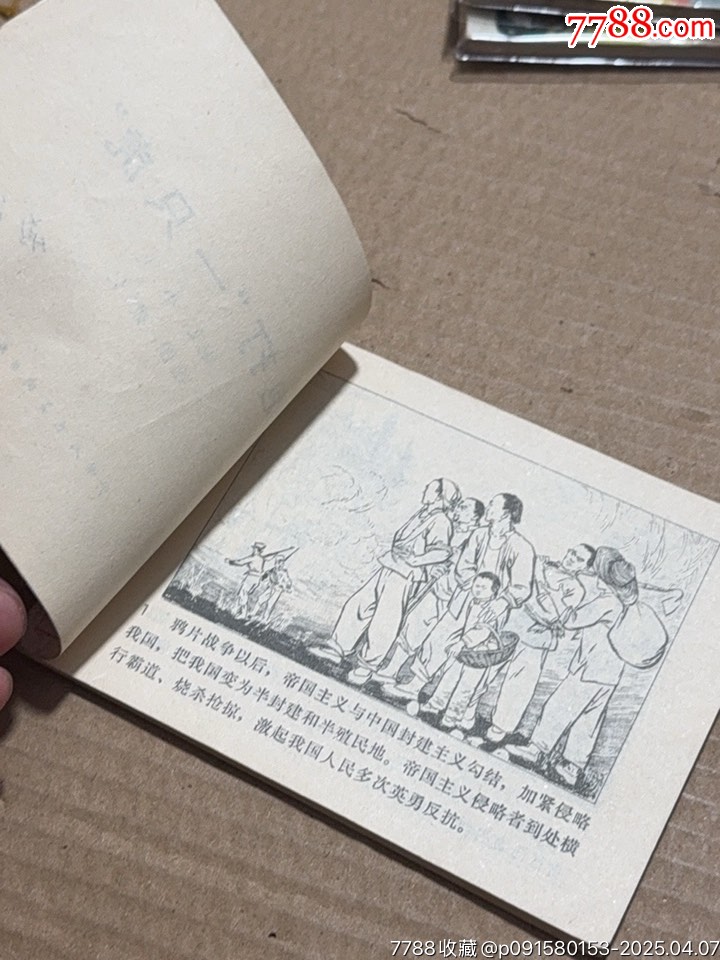 7788.com
1 鸦片战争以后，帝国主义与中国封建主义勾结，加紧侵略
我国，把我国变为半封建和半殖民地。帝国主义侵略者到处横
行霸道、烧杀抢掠，激起我国人民多次英勇反抗。
7788收藏@p091580153-2025.04.07